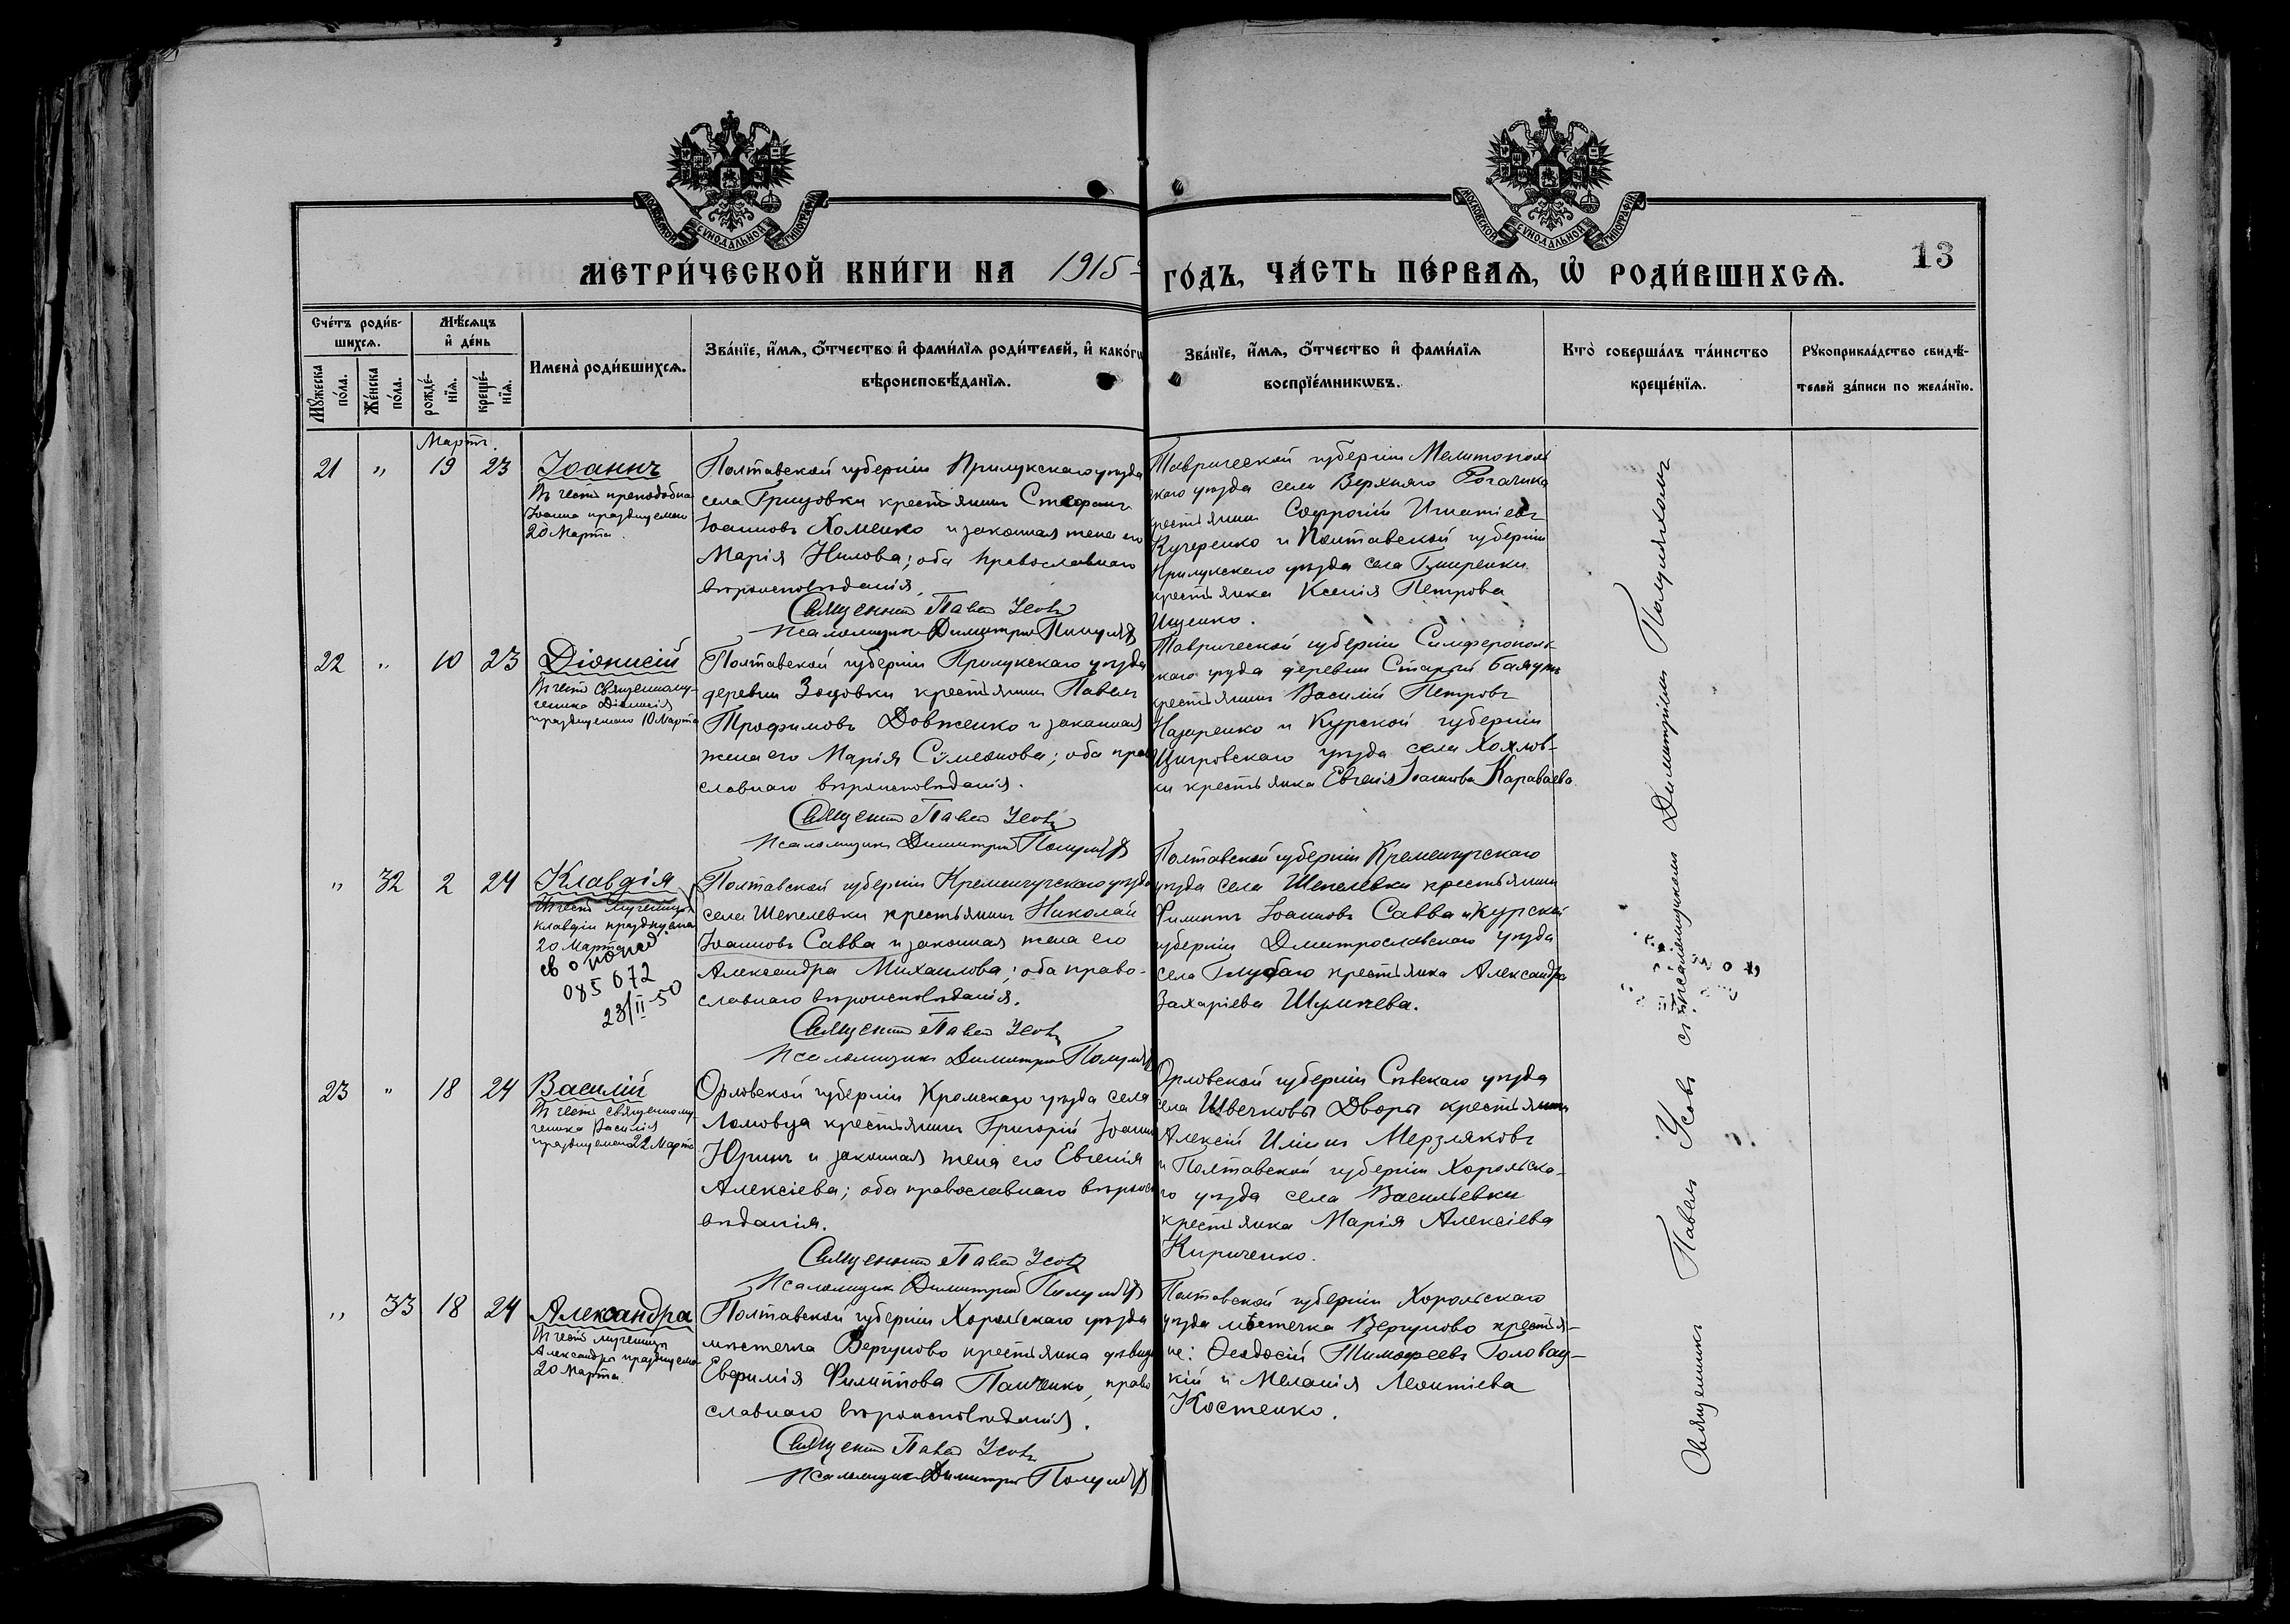 МОСКОВСКОЙ СѴНОДАЛЬНОЙ ТИПОГРАФІИ
МОСКОВСКОЙ СѴНОДАЛЬНОЙ ТИПОГРАФІИ
13
МЕТРИ́ЧЕСКОЙ КНИ́ГИ НА 1915 ГО́ДЪ, ЧА́СТЬ ПЕ́РВАѦ, Ѡ҆ РОДИ́ВШИХСѦ.
Сче́тъ роди́в-
шихсѧ.
Мѣ́сѧцъ
и҆ де́нь
Мꙋ́жеска
по́ла.
Же́нска
по́ла.
рожде́-
нїѧ.
креще́-
нїѧ.
Имена̀ роди́вшихсѧ.
Зва́нїе, и҆́мѧ, ѻ҆́тчество и҆ фами́лїѧ роди́телей, и҆ како́гѡ
вѣроисповѣ́данїѧ.
Зва́нїе, и҆́мѧ, ѻ҆́тчество и҆ фами́лїѧ
воспрїе́мникѡвъ.
Кто̀ соверша́лъ та́инство
креще́нїѧ.
Рꙋкоприкла́дство свидѣ́-
телей за́писи по жела́нїю.
Мартъ.
21 " 19 23 Іоаннъ
Въ честь преподобна
Іоанна празднуемаго
20 Марта.
Полтавской губерніи Прилукскаго уѣзда
села Грицовки крестьянинъ Стефанъ
Іоанновъ Хоменко и законная жена его
Марія Нилова; оба православнаго
вѣроисповѣданія.
Священникъ Павелъ Усовъ
Псаломщикъ Димитрій
Таврической губерніи Мелитополь
скаго уѣзда села Верхняго Рогачика
крестьянинъ Софроній Игнатіевъ
Кучеренко и Полтавской губерніи
Прилукскаго уѣзда села
крестьянка Ксенія Петрова
Ищенко.
22 " 10 23 Діонисій
Въ честь священному-
ченика Діонисія
празднуемаго 10 Марта
Полтавской губерніи Прилукскаго уѣзда
деревни крестьянинъ Павелъ
Трофимовъ Довженко и законная
жена его Марія Сѵмеонова; оба пра
славнаго вѣроисповѣданія.
Священникъ Павелъ Усовъ
Псаломщикъ Димитрій
Таврической губерніи Симферополь
скаго уѣзда деревни Старый
крестьянинъ Василій Петровъ
Назаренко и Курской губерніи
Щигровскаго уѣзда села Хохлов-
ки крестьянка Евгенія Іоаннова Караваева.
" 32 2 24 Клавдія
Въ честь мученицы
Клавдіи празднуемая
20 Марта
085 072
23/II-50
Полтавской губерніи Кременчугскаго уѣзда
села Шепелевки крестьянинъ Николай
Іоанновъ Савва и законная жена его
Александра Михаилова; оба право-
славнаго вѣроисповѣданія.
Священникъ Павелъ Усовъ
Псаломщикъ Димитрій
Полтавской губерніи Кременчугскаго
уѣзда села Шепелевки крестьянинъ
Филиппъ Іоанновъ Савва и Курской
губерніи Дмитрославскаго уѣзда
села крестьянка Александра
Захаріева
23 " 18 24 Василій
Въ честь священному-
ченика Василія
празднуемаго 22 Марта
Орловской губерніи Кромскаго уѣзда села
Ломовца крестьянинъ Григорій Іоанн
Юринъ и законная жена его Евгенія
Алексіева; оба православнаго вѣроиспо
вѣданія.
Священникъ Павелъ Усовъ
Псаломщикъ Димитрій
Орловской губерніи Сѣвскаго уѣзда
села Швечковы Дворы крестьянинъ
Алексій Иліинъ Мерзляковъ
и Полтавской губерніи Хорольска-
го уѣзда села Васильевки
крестьянка Марія Алексіева
Кириченко.
" 33 18 24 Александра
Въ честь мученицы
Александры празднуемо-
20 Марта.
Полтавской губерніи Хорольскаго уѣзда
мѣстечка Вергуново крестьянка дѣвица
Евфимія Филиппова Панченко, право
славнаго вѣроисповѣданія.
Священникъ Павелъ Усовъ
Псаломщикъ Димитрій
Полтавской губерніи Хорольскаго
уѣзда мѣстечка Вергуново крестья-
не: Ѳеодосій Тимофеевъ Головац-
кій и Меланія Леонтіева
Костенко.
Священникъ Павелъ Усовъ съ псаломщикомъ Димитріемъ